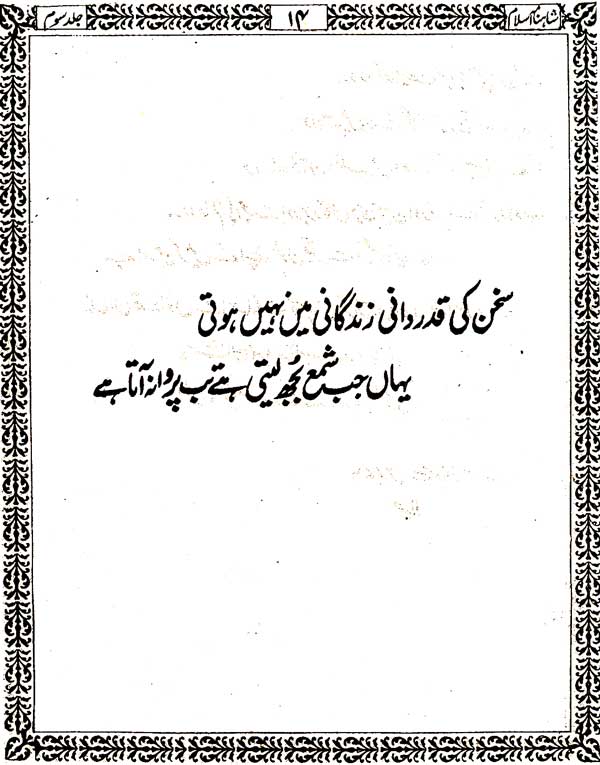 شاہنامۂ اسلام
۱۴
جلد سوم
سخن کی قدر دانی زندگانی میں نہیں ہوتی
یہاں جب شمع بُجھ لیتی ہے تب پروانہ آتا ہے